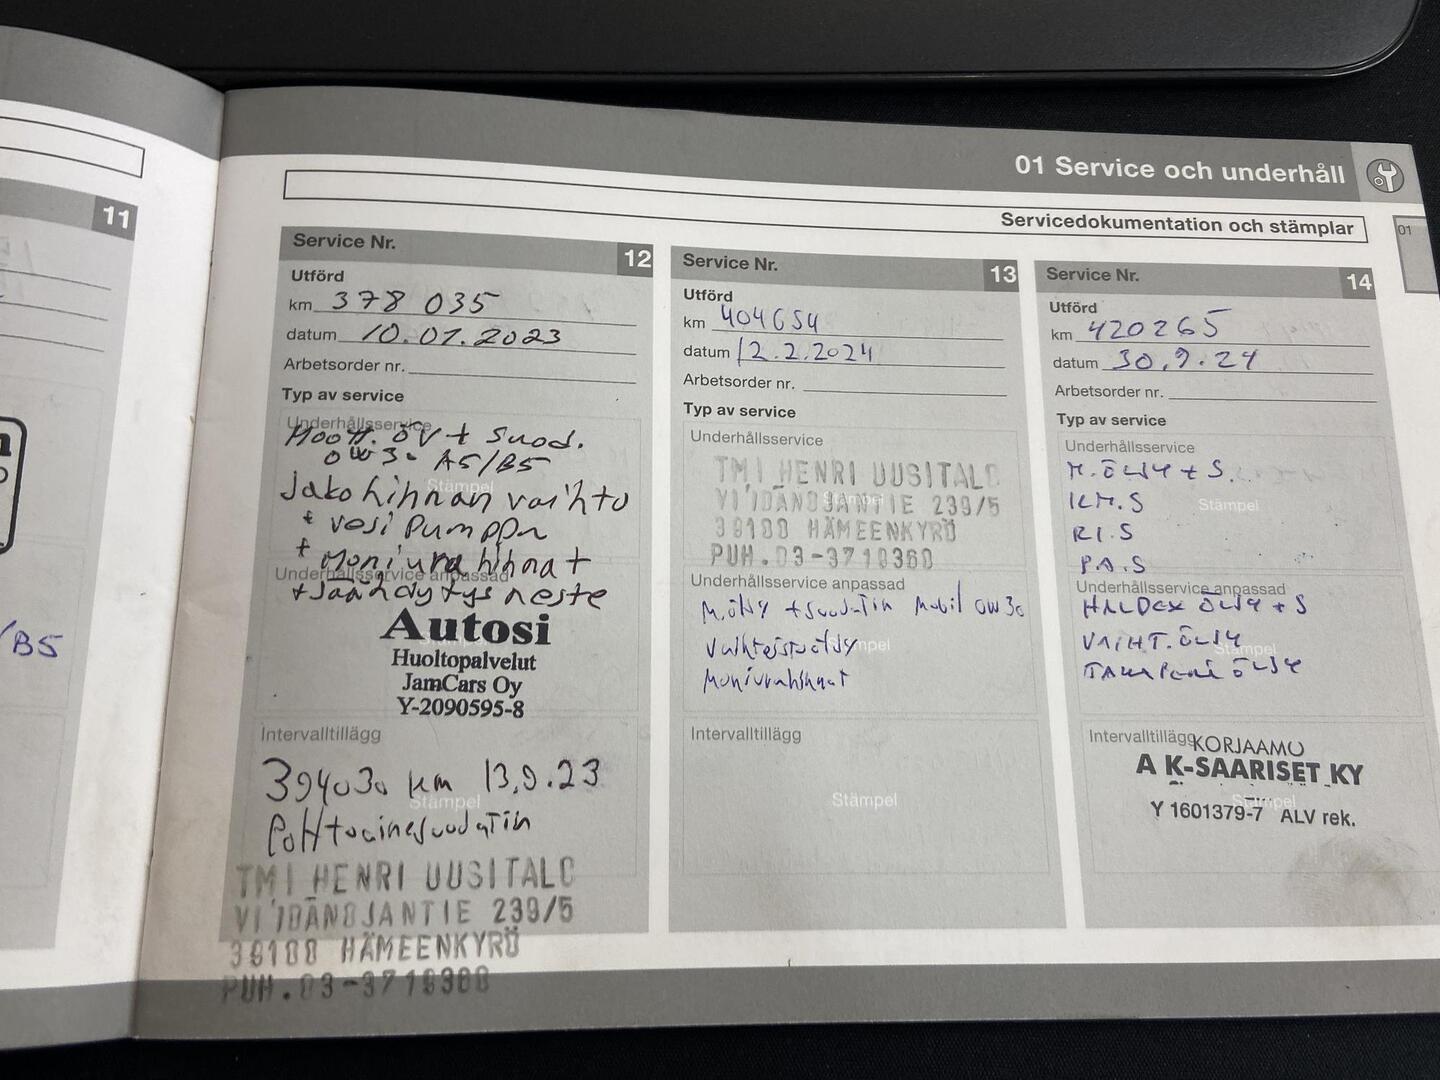 11
/B5
01 Service och underhåll
Servicedokumentation och stämplar
01
Service Nr. 12
Utförd
km 378 035
datum 10.01.2023
Arbetsorder nr.
Typ av service
Underhållsservice
Moott. öv + suod.
0W30 A5/B5
Stämpel
Jakohihnan vaihto
+ vesi pumppu
+ Moniura hihnat
Underhållsservice anpassad
+ Jäähdytys neste
Autosi
Huoltopalvelut
JamCars Oy
Y-2090595-8
Intervalltillägg
394030 km 13.9.23
Stämpel
Polttoainesuodatin
TMI HENRI UUSITALO
239/5
39100 HÄMEENKYRÖ
PUH.03-3719360
Service Nr. 13
Utförd
km 404654
datum 12.2.2024
Arbetsorder nr.
Typ av service
Underhållsservice
TMI HENRI UUSITALO
Stämpel
239/5
39100 HÄMEENKYRÖ
PUH.03-3719360
Underhållsservice anpassad
M.öljy + suodatin Mobil 0W30
Vaihteistoöljy
Stämpel
Moniurahihnat
Intervalltillägg
Stämpel
Service Nr. 14
Utförd
km 420265
datum 30.9.24
Arbetsorder nr.
Typ av service
Underhållsservice
M.ÖLJY + S.
Stämpel
KM.S
RI.S
PA.S
Underhållsservice anpassad
HALDEX ÖLJY + S
VAIHT.ÖLJY
Stämpel
TAKAPERÄ ÖLJY
Intervalltillägg
KORJAAMO
A K-SAARISET KY
Stämpel
Y 1601379-7 ALV rek.